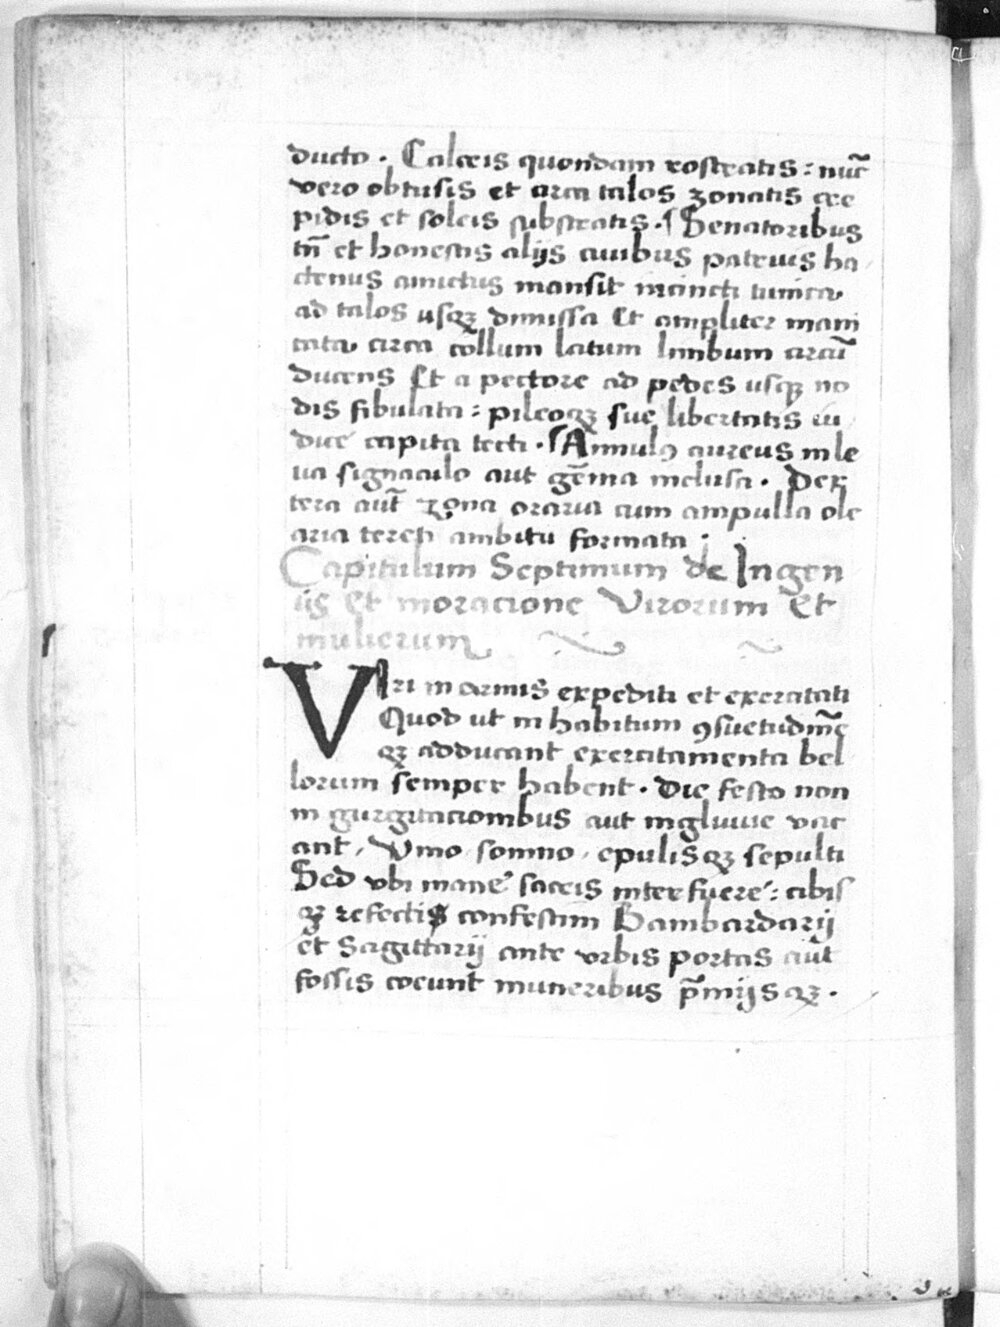 ducto . Calceis quondam rostratis : nūc
vero obtusis et circa talos zonatis cre
pidis et soleis substratis . Senatoribus
tn̄ et honestis alijs ciuibus patriis ha
ctenus amictus mansit incincti tunica
ad talos usqꝫ dimissa Et ampliter mani
cata circa collum latum limbum circū
ducens Et a pectore ad pedes usqꝫ no
dis fibulata : pileoqꝫ sue libertatis in
dice capita tecti . Annulꝰ aureus in le
ua signaculo aut gēma inclusa . Dex
tera aūt zona oraria cum ampulla ole
aria tereti ambitu formata .
Capitulum Septimum de Ingen
iis et moracione Virorum Et
mulierum
Viri in armis expediti et exercitati
Quod ut in habitum ꝯsuetudinē
qꝫ adducant exercitamenta bel
lorum semper habent . Die festo non
in gurgitacionibus aut ingluuie vac
ant , Vino somno , epulisqꝫ sepulti
Sed vbi mane sacris interfuere : cibis
qꝫ refectis confestim Bambardarij
et Sagittarij ante vrbis portas aut
fossis coeunt muneribus p̄mijsqꝫ .